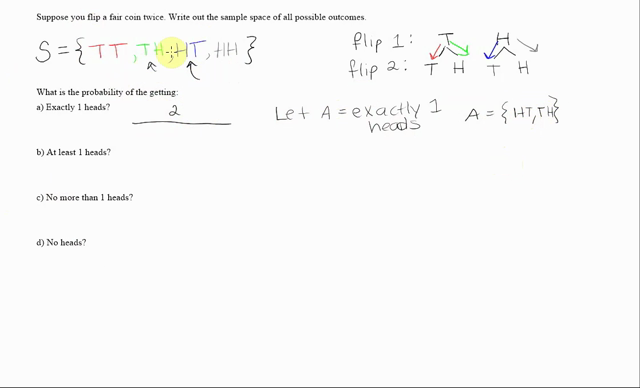 Suppose you flip a fair coin twice. Write out the sample space of all possible outcomes.
S = { TT, TH, HT, HH }
flip 1: T H
flip 2: T H T H
What is the probability of the getting:
a) Exactly 1 heads? 2
Let A = exactly 1 heads
A = { HT, TH }
b) At least 1 heads?
c) No more than 1 heads?
d) No heads?